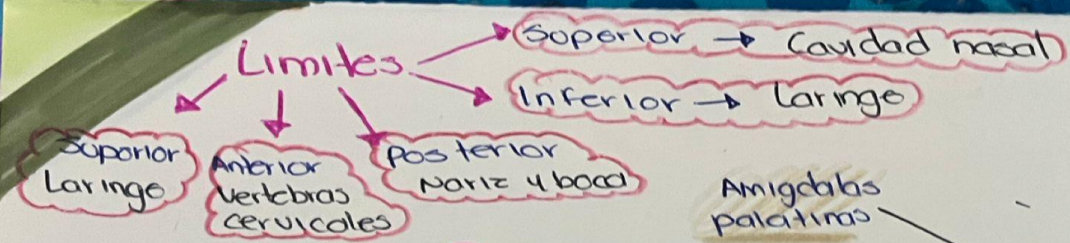 Limites
Superior → Cavidad nasal
Inferior → Laringe
Superior
Laringe
Anterior
Vertebras
cervicales
Posterior
Nariz y boca
Amigdalas
palatinas